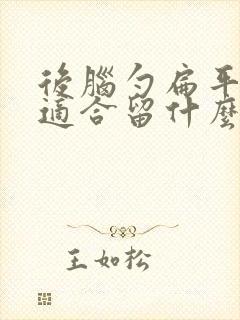 後腦勺扁平
適合留什麼
王如松